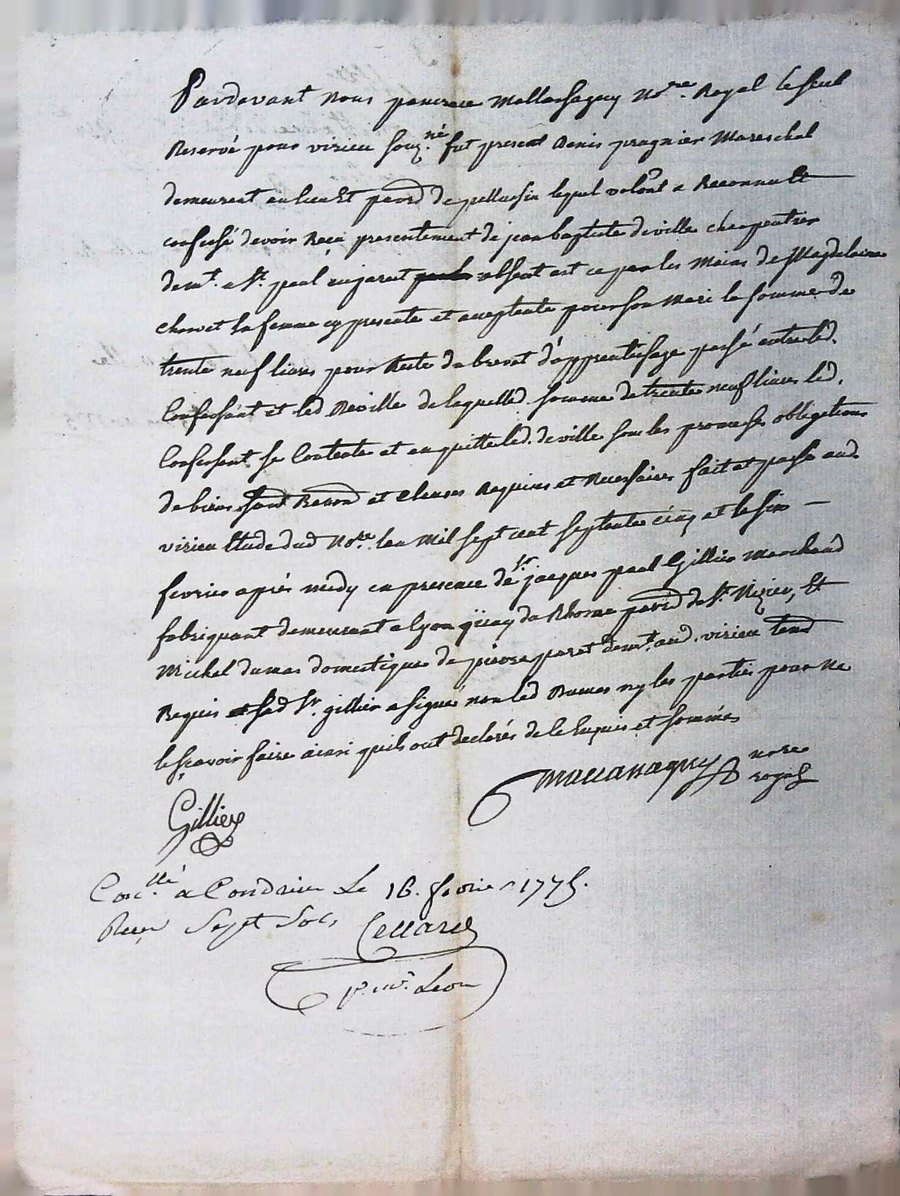 Pardevant Nous pancrace Mallassagny No.re Royal le seul
Reservé pour virieu souz.né fut present Denis pragnier Mareschal
demeurant au lieu et parr.d de pellussin lequel volont.a Reconnu et
confessé devoir Reçu presentement de jean baptiste deville charpentier
dem.t a S.t paul en jarret absent est ce par les Mains de Magdelaine
Chorvet sa femme cy presente et acceptente pour son Mari la somme de
trente neuf livres pour Reste du brevet d'apprentissage passé entre led.
Confessant et led Deville de laquelle d. somme de trente neuf livres led.
Confessant se Contente et en quitte led. deville sous les promesses obligations
de biens Renon.d et Clauses Requises et Necessaires fait et passé aud.
virieu Etude dud No.re l'an Mil sept cent septente cinq et le six
fevrier après midy en presence de s.r jacques paul Gillier Marchand
fabriquant demeurant a Lyon quay du Rhone parr.d de S.t Nizier, Et
Michel dumas domestique de pierre paret dem.t aud. virieu temd
Requis led S.r gillier a signé non led Dumas ny les parties pour ne
le sçavoir faire ainsi quils ont declarés de ce Enquis et sommés
Mallassagny nore
royal
Gillier
Con.llé a Condrieu Le 16. fevrier 1775.
Reçu Sept Sols Cellard
p. m. Leon